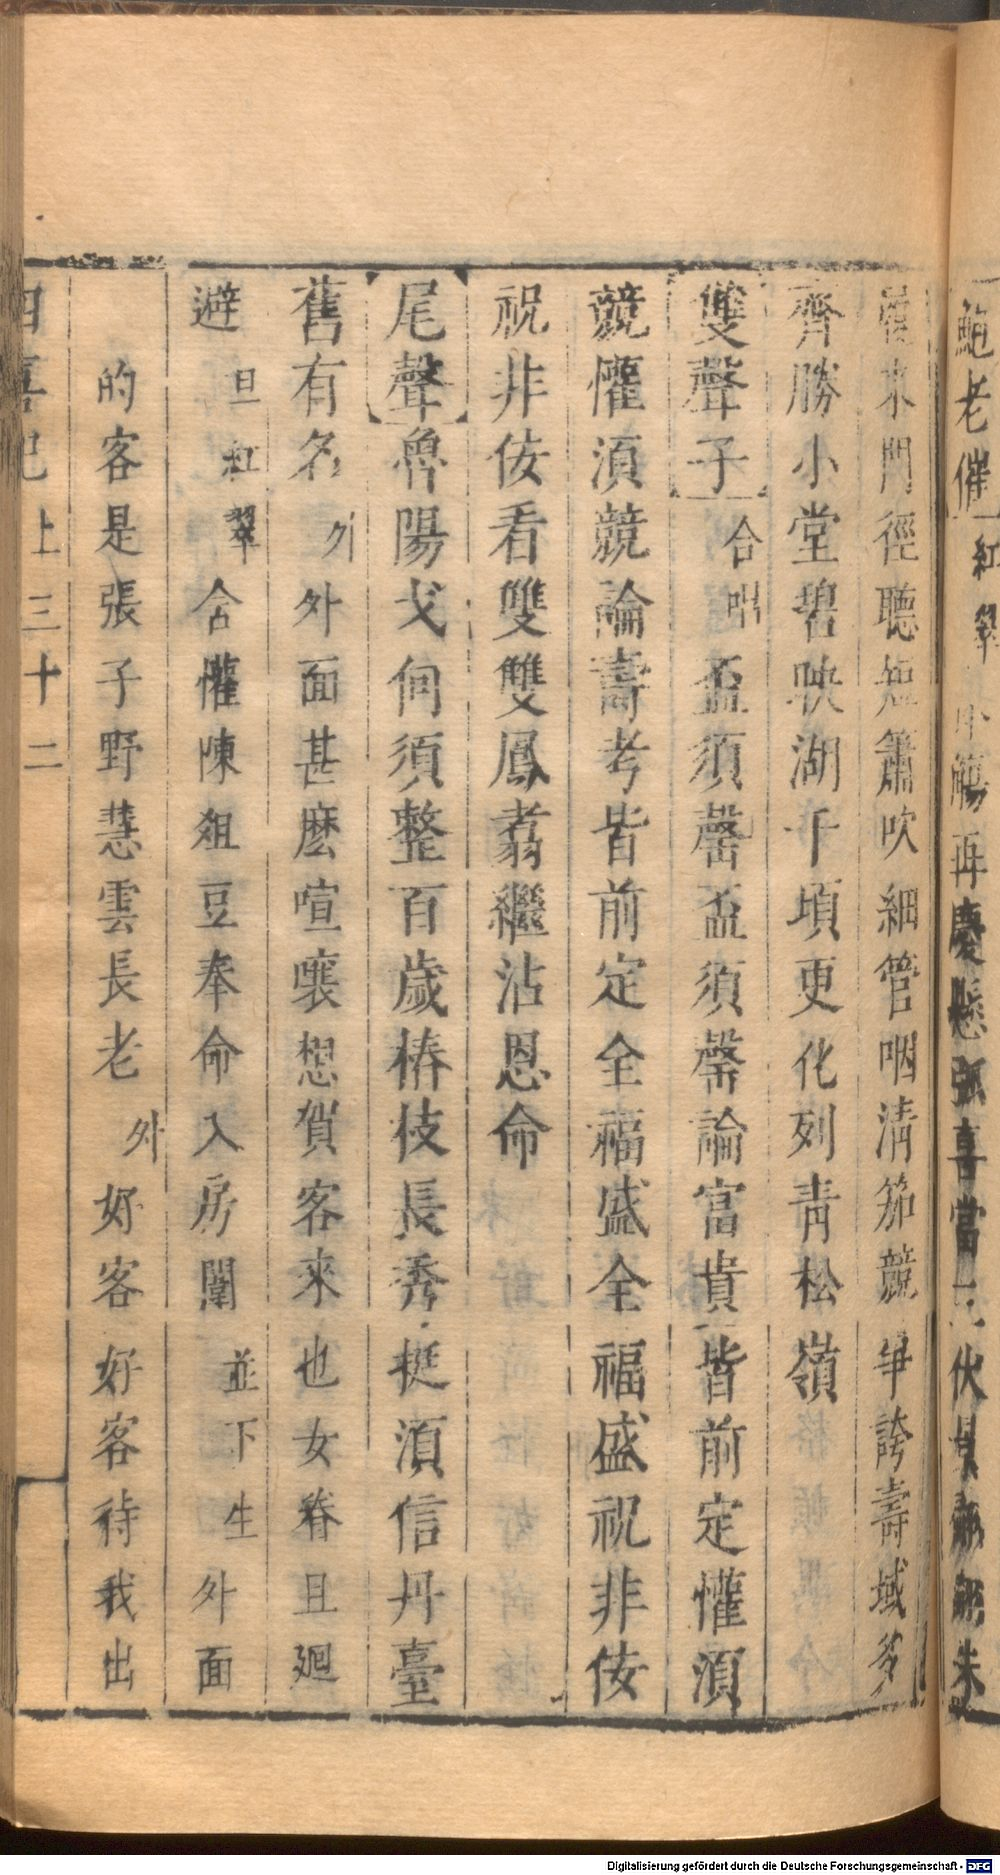 鮑老催 紅翠 觴再慶懸弧喜當 伏
來門徑聽短簫吹細管咽清笳競爭誇壽域多
齊勝小堂碧映湖千頃更化列青松嶺
雙聲子 合唱 盃須罄盃須罄論富貴皆前定懽湏
競懽湏競論壽考皆前定全福盛全福盛祝非佞
祝非佞看雙雙鳳翥繼沾恩命
尾聲 魯陽戈何須整百歲椿枝長秀挺湏信丹臺
舊有名 外 外面甚麽喧嚷想賀客來也女眷且廻
避 旦紅翠 合懽陳俎豆奉命入房闈 並下生 外面
的客是張子野慧雲長老 外 好客好客待我出
四喜記 上 三十二
Digitalisierung gefördert durch die Deutsche Forschungsgemeinschaft - DFG